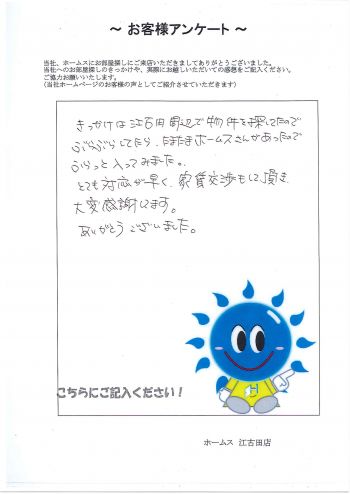 ～ お客様アンケート ～
当社、ホームスにお部屋探しにご来店いただきましてありがとうございました。
当社へのお部屋探しのきっかけや、実際にお越しいただいての感想をご記入ください。
ご協力お願いいたします。
(当社ホームページのお客様の声としてご紹介させていただきます)
きっかけは江古田周辺で物件を探してたので
ぶらぶらしてたら、たまたまホームスさんがあったので
ふらっと入ってみました。
とても対応が早く、家賃交渉もして頂き
大変感謝してます。
ありがとうございました。
こちらにご記入ください！
ホームス 江古田店